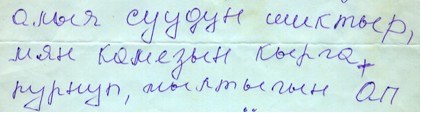 алыя суудун шиктыр,
мян камезын кырга,
пурнуп, мылтыгын ап